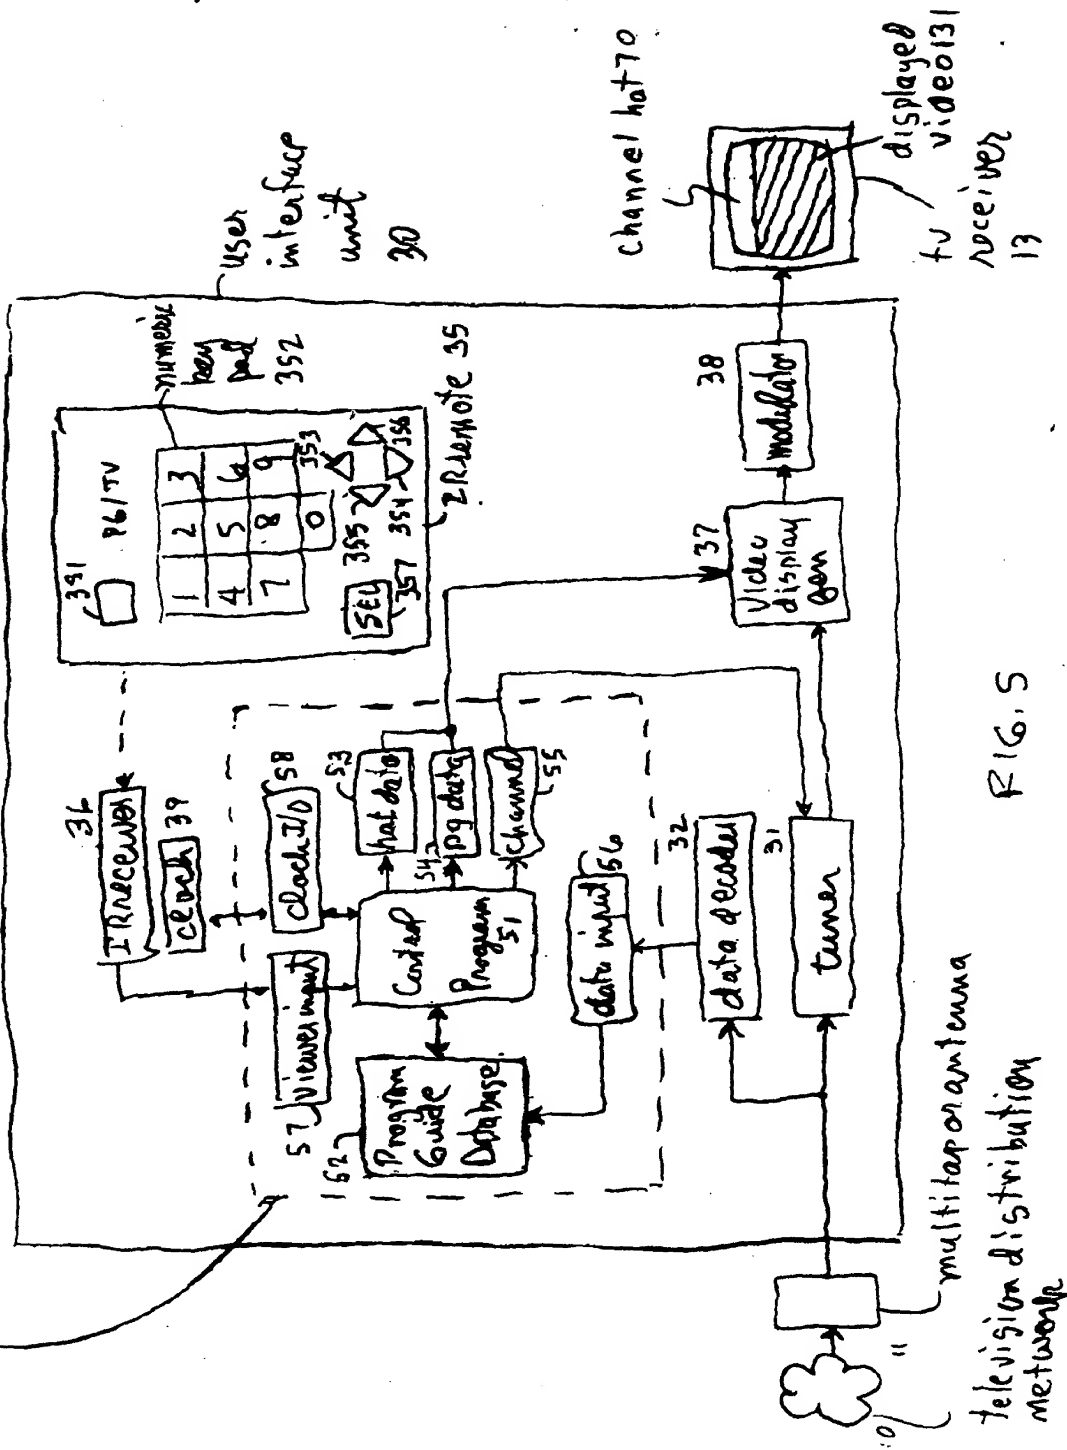 user
interface
unit
30
numeric
key
pad
352
391
PG/TV
1 2 3
4 5 6
7 8 9
0
353
355
354
356
SEL
357
IR remote 35
36
IR receiver
clock 39
Clock I/O
58
57
Viewer input
hat data
53
54
pg data
channel
55
Control
Program
51
52
Program
Guide
Database
data input
56
32
data decoder
31
tuner
37
Video
display
gen
38
modulator
channel hat 70
displayed
video 131
tv
receiver
13
11
multitap or antenna
10
television distribution
network
FIG. 5